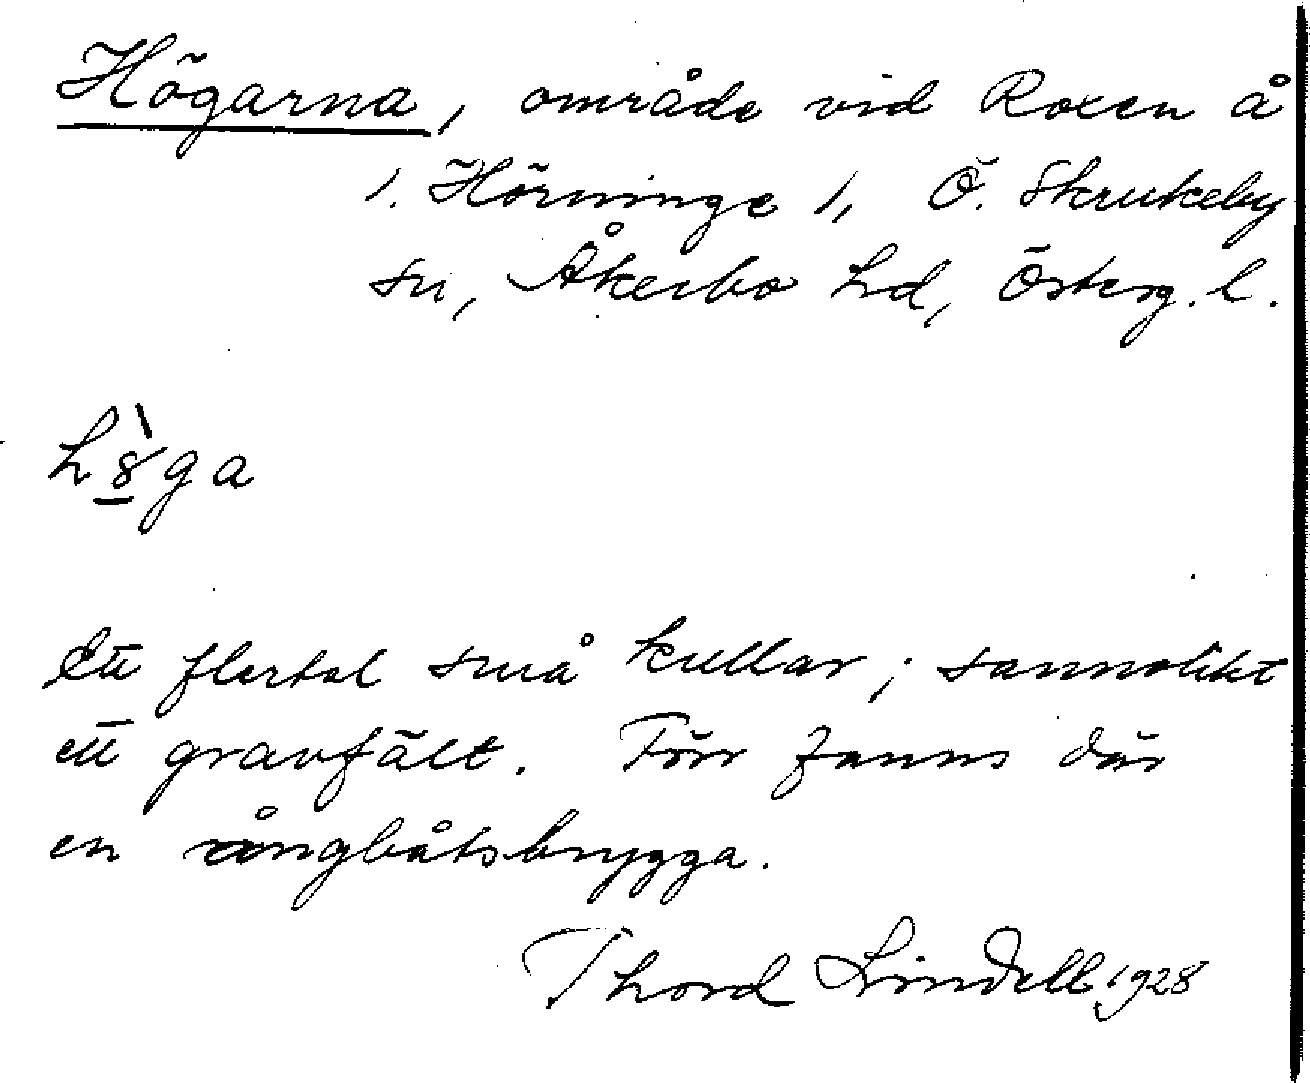 Högarna, område vid Roxen å
1. Hörninge 1, Ö. Skrukeby
sn, Åkerbo hd, Österg. l.
hö̀ga
Ett flertal små kullar; sannolikt
ett gravfält. Förr fanns där
en ångbåtsbrygga.
Thord Lindell, 1928